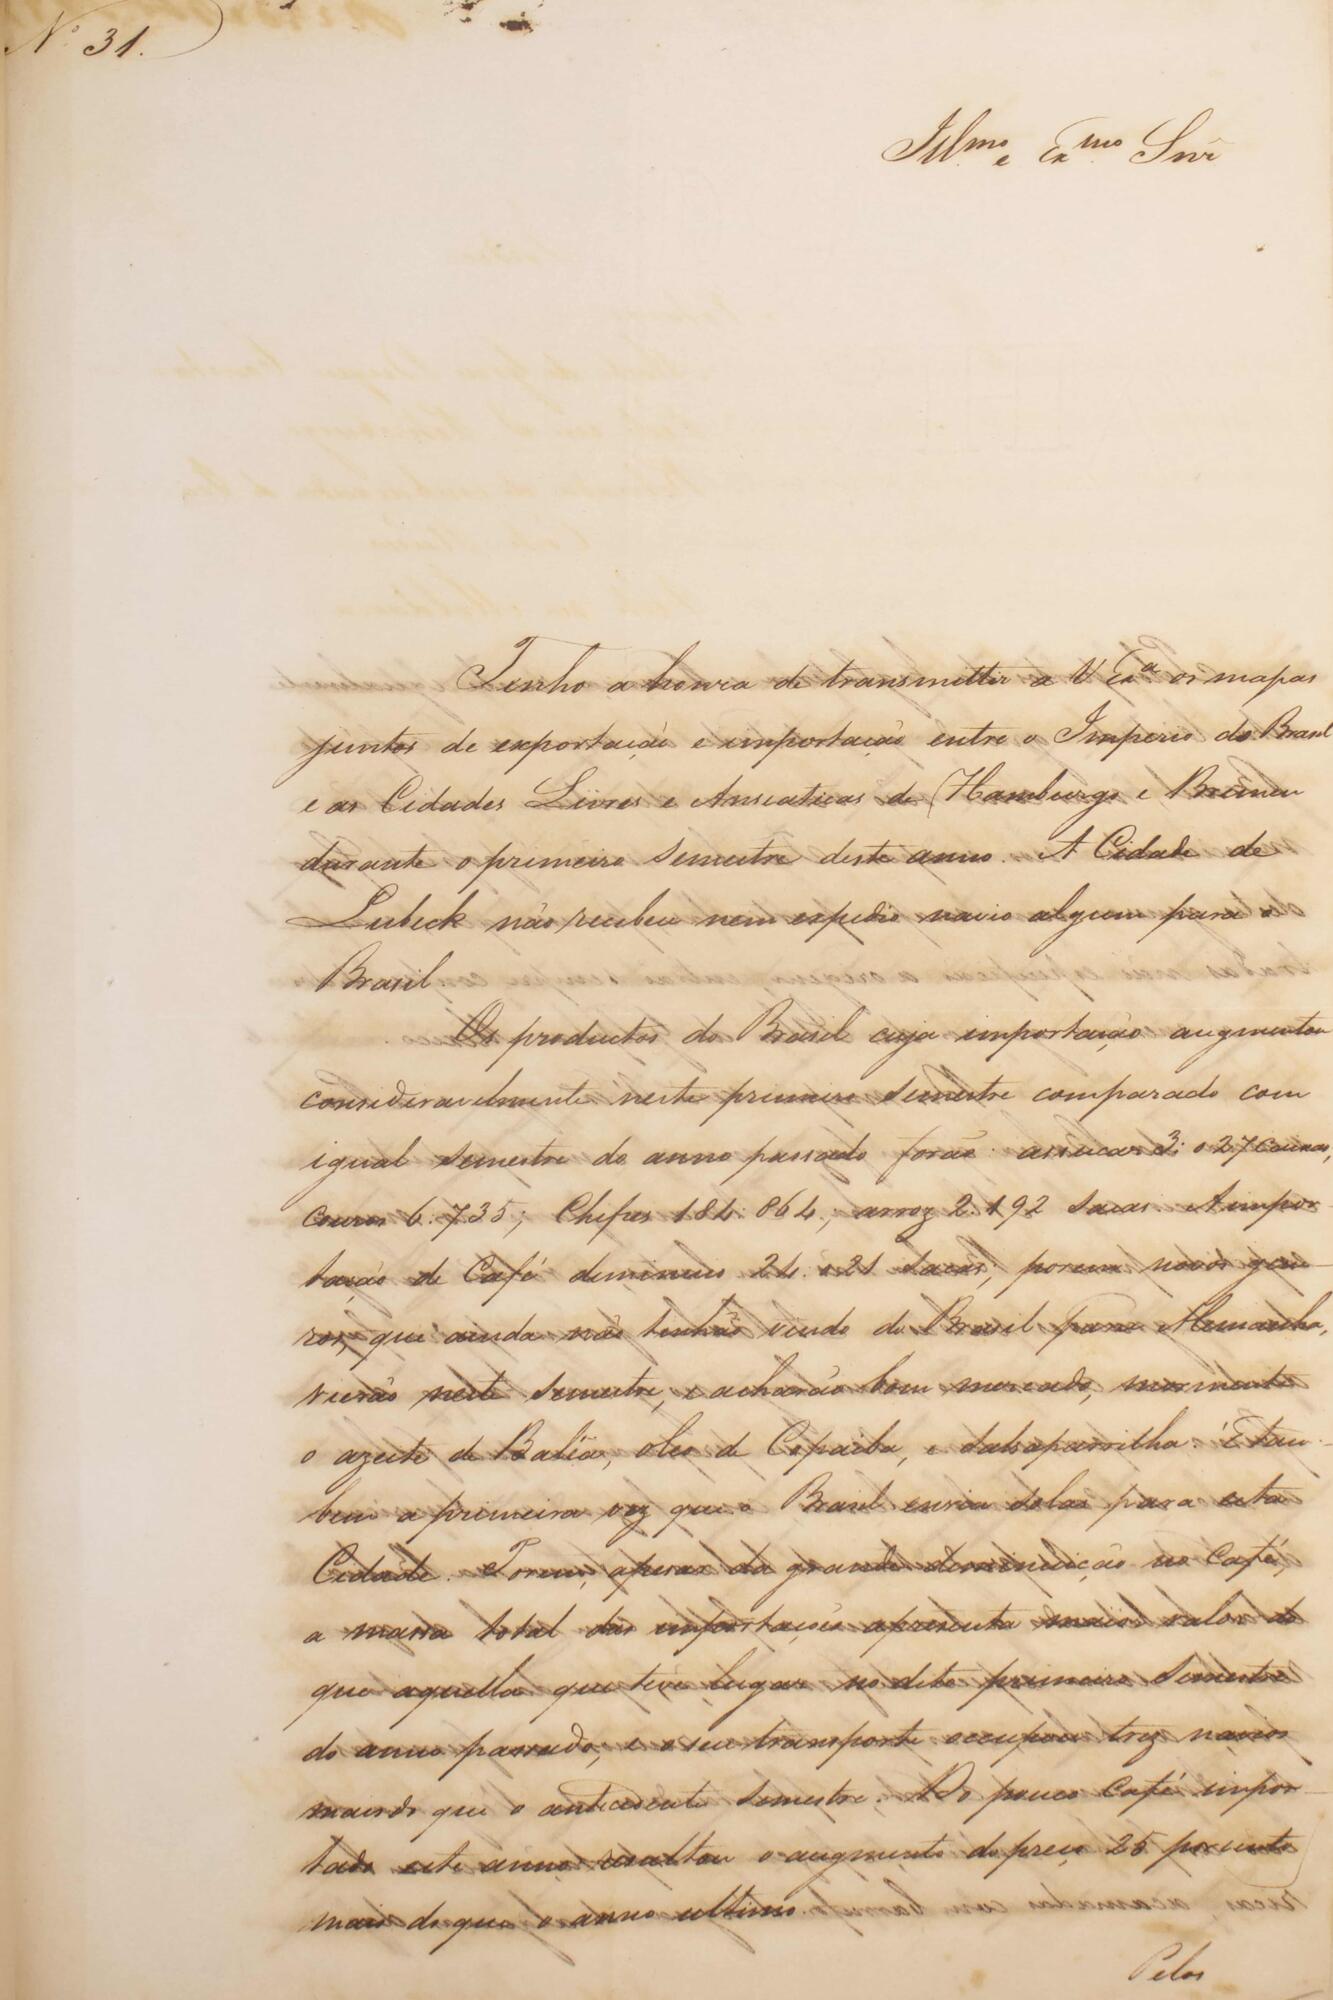 Nº 31.
Illmo e Exmo Snr
Tenho a honra de transmittir a V Exa os mapas
juntos de exportação e importação entre o Imperio do Brasil
e as Cidades Livres e Anseaticas de Hamburgo e Bremen
durante o primeiro semestre deste anno. A Cidade de
Lubeck não recebeu nem expedio navio algum para o
Brasil
Os productos do Brasil cuja importação augmentou
consideravelmente neste primeiro semestre comparado com
igual semestre do anno passado forão: assucar 3:027 caixas,
couros 6:735; Chifres 184:864; arroz 2:192 sacas. A impor-
tação de Café deminuio 24:021 sacas; porem novos gene-
ros, que ainda não tinhão vindo do Brasil para Alemanha,
vierão neste semestre, e acharão bom mercado, mormente
o azeite de Balêa, oleo de Copaiba, e salsaparrilha. É tam-
bem a primeira vez que o Brasil envia solas para esta
Cidade. Porem, apesar da grande deminuição no Café,
a massa total das importações apresenta maior valor do
que aquella que teve lugar no dito primeiro semestre
do anno passado; e o seu transporte occupou trez navios
mais do que o antecedente semestre. Do pouco Café impor-
tado este anno resultou o augmento do preço 25 por cento
mais do que o anno ultimo.
Pelos